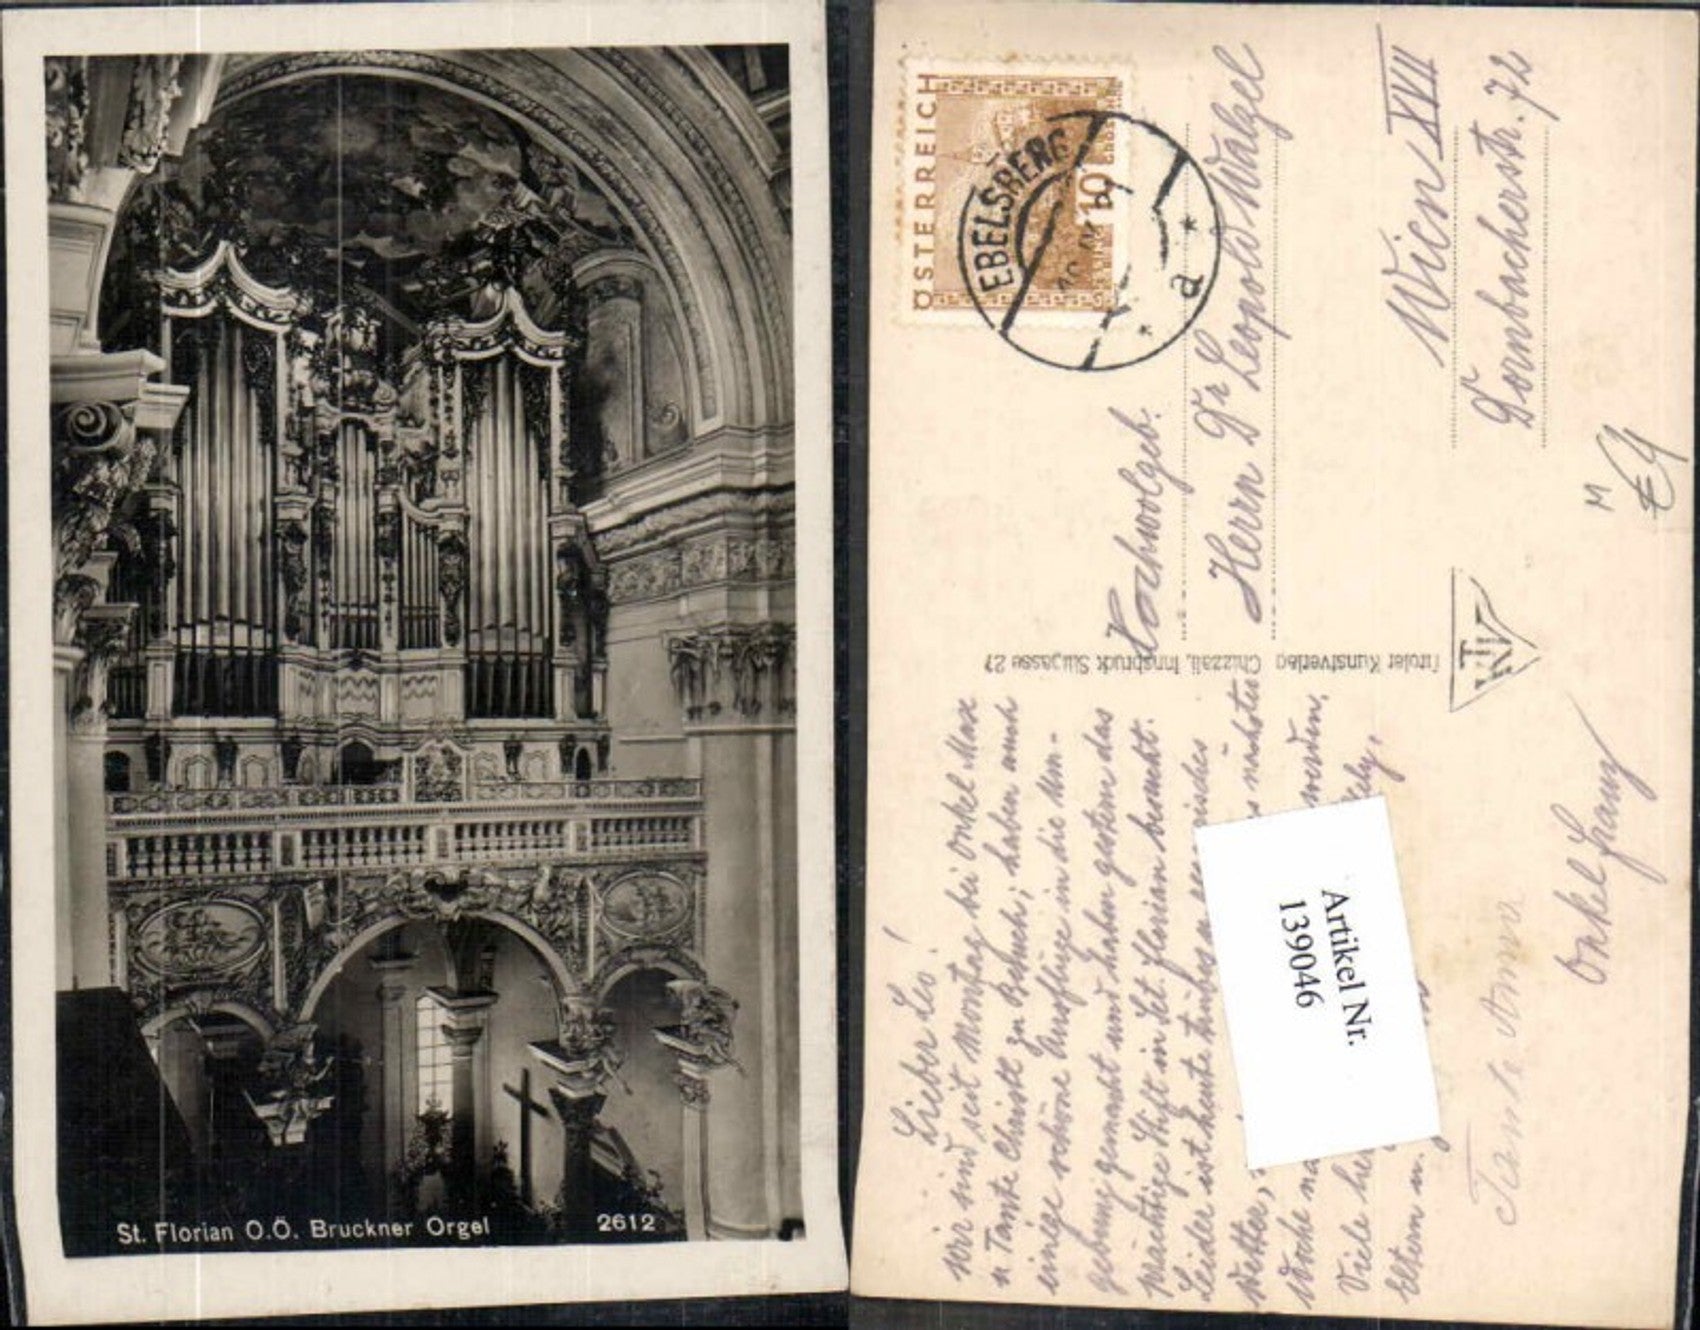 St. Florian O.Ö. Bruckner Orgel
2612
ÖSTERREICH
10
EBELSBERG
a
Hochwolgeb.
Herrn Dr Leopold Walgel
Wien XVII
Dornbacherstr. 72
M
€4
Tiroler Kunstverlag Chizzali, Innsbruck Sillgasse 27
Lieber Leo!
Wir sind seit Montag bei Onkel Max
u Tante Christl zu Besuch; haben auch
einige schöne Ausflüge in die Um-
gebung gemacht und haben gestern das
prächtige Stift in Set. Florian besucht.
Leider ist heute trübes u
Wetter, nächster
Woche werden.
Viele
Eltern u.
Tante Anna
Onkel Franz
Artikel Nr.
139046